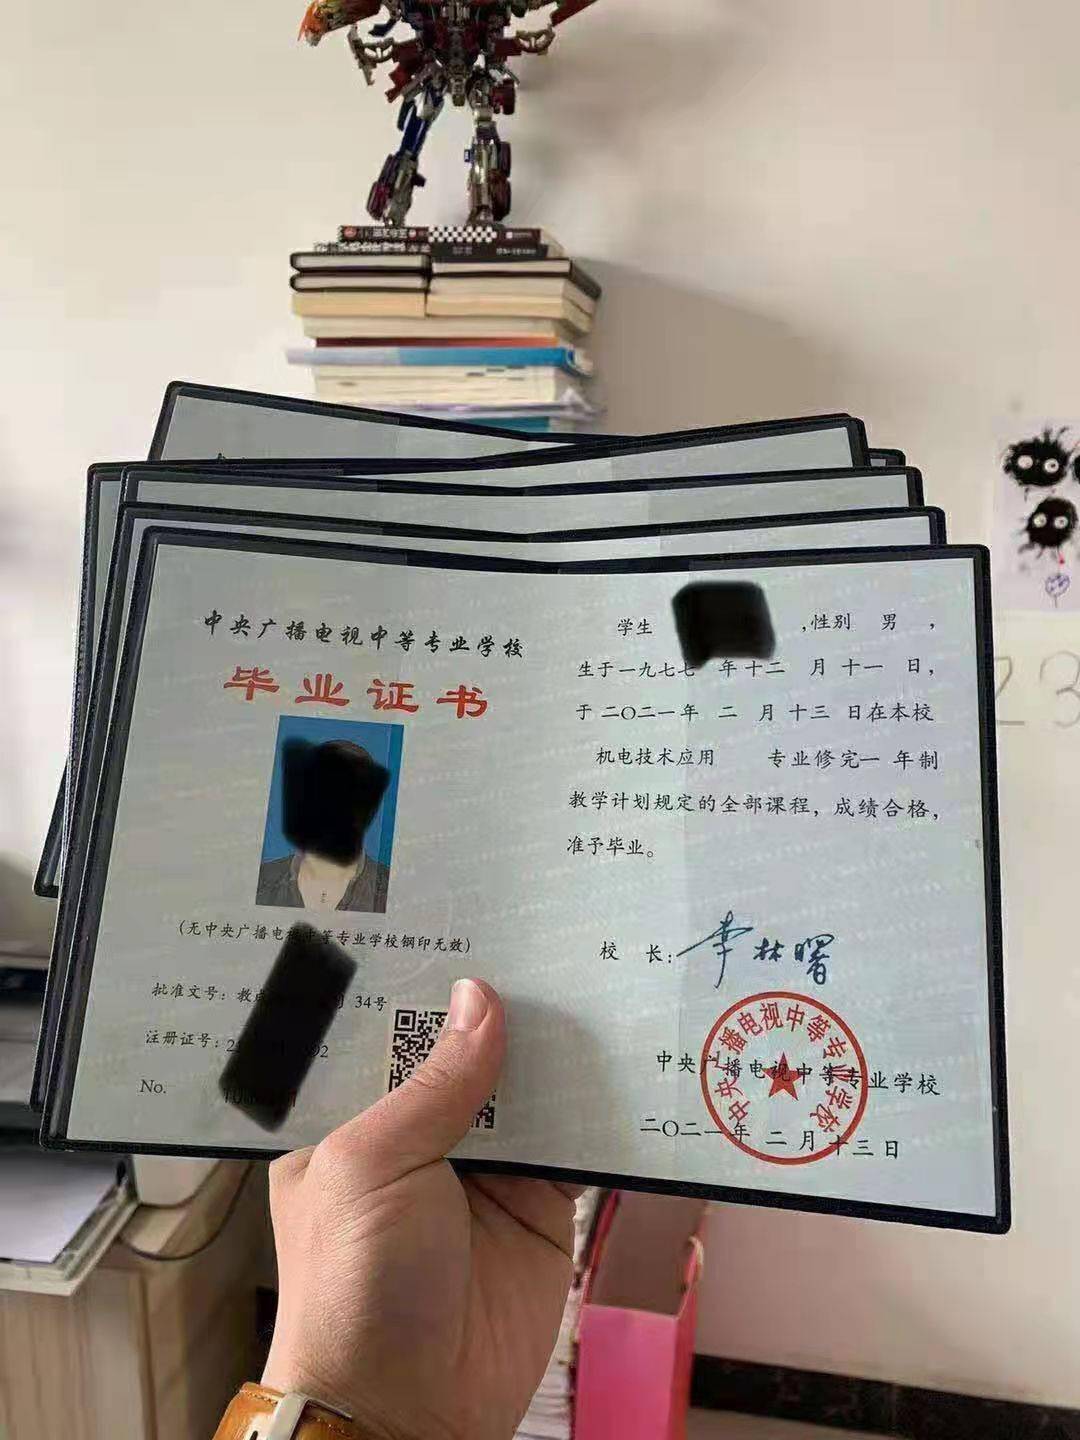 中央广播电视中等专业学校
毕业证书
(无中央广播电视中等专业学校钢印无效)
批准文号：教 34号
注册证号：2 92
No.
学生 ,性别 男 ,
生于一九七七 年十二 月十一 日，
于二〇二一年 二 月十三 日在本校
机电技术应用 专业修完一 年制
教学计划规定的全部课程，成绩合格，
准予毕业。
校 长：李林曙
中央广播电视中等专业学校
中央广播电视中等专业学校
二〇二一年 二 月十三日
23